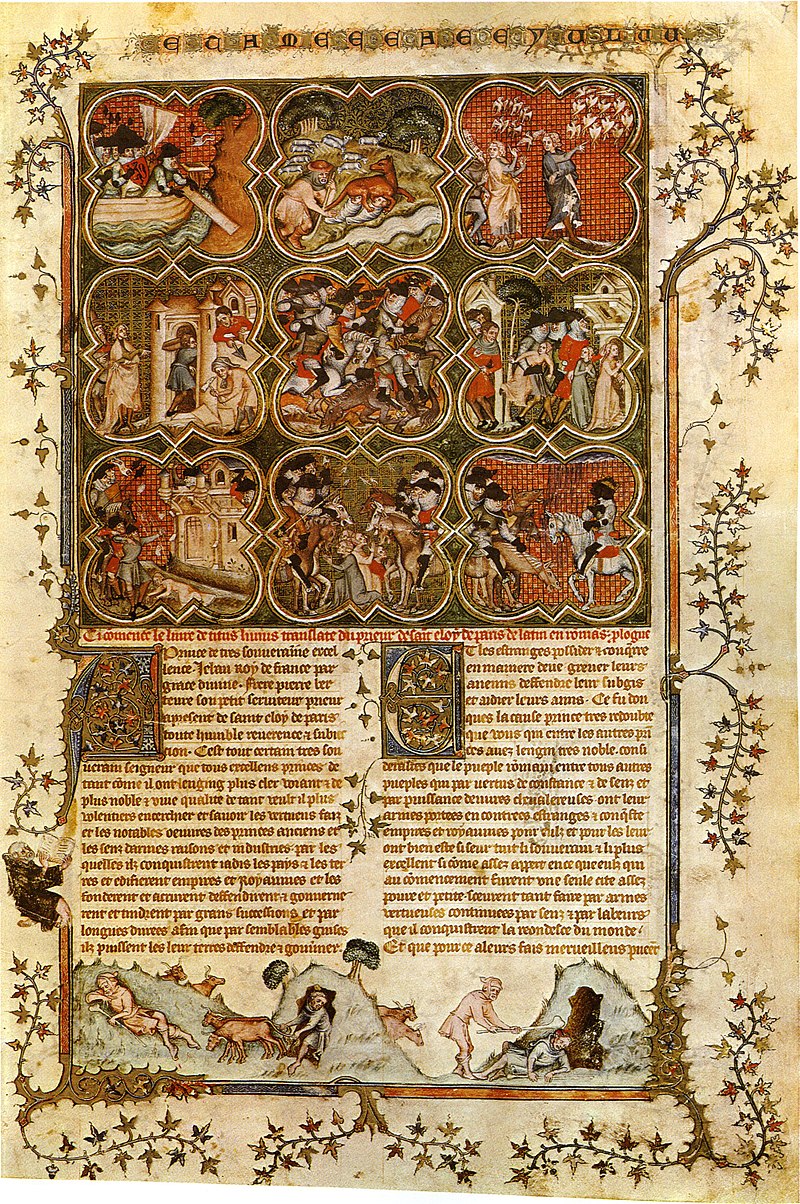 Ci cōmence le liure de titus liuius translate du prieur de sait eloy de paris de latin en romās. plogue
A Prince de tres souueraine excel
lence. Jehan roy de france par
grace diuine. frere pierre ber
ceure son petit seruiteur prieur
a present de saint eloy de paris
toute humble reuerence & subiec
tion. Cest tout certain tres sou
uerain seigneur que tous excellens princes de
tant come il ont lenging plus cler voiant & de
plus noble & uiue qualite de tant veult il plus
volentiers encerchier et sauoir les vertueus faiz
et les notables oeuures des princes anciens et
les senz darmes raisons et industries par les
quelles ilz conquistrent iadis les pays & les ter
res et edifierent empires et Royaumes et les
fonderent et acrurent deffendirent & gouuerne
rent et tindrent par grans successions et par
longues durees afin que par semblables guises
ilz puissent les leur terres deffendre & gouūner
Et les estranges possider & conq̄rre
en maniere deue greuer leurs
anemis deffendre leur subgis
et aidier leurs amis. Ce fu don
ques la cause prince tres redoubte
que vous qui entre les autres prī
ces auez lengin tres noble. consi
derastes que le pueple romain entre tous autres
pueples qui par uertus de constance & de senz et
par puissance deuures cheualereuses ont leur
armes portees en contrees estranges & conq̄ste
empires et royaumes pour eulz et pour les leur
ont bien este si seur tuit li souuerain & li plus
excellent si cōme assez appert en ce que eulz qui
au cōmencement furent vne seule cite assez
poure et petite. sceurent tant faire par armes
vertueuses continuees par senz & par labeurs
que il conquistrent la reondesce du monde.
Et que pour ce a leurs fais merueilleus puent